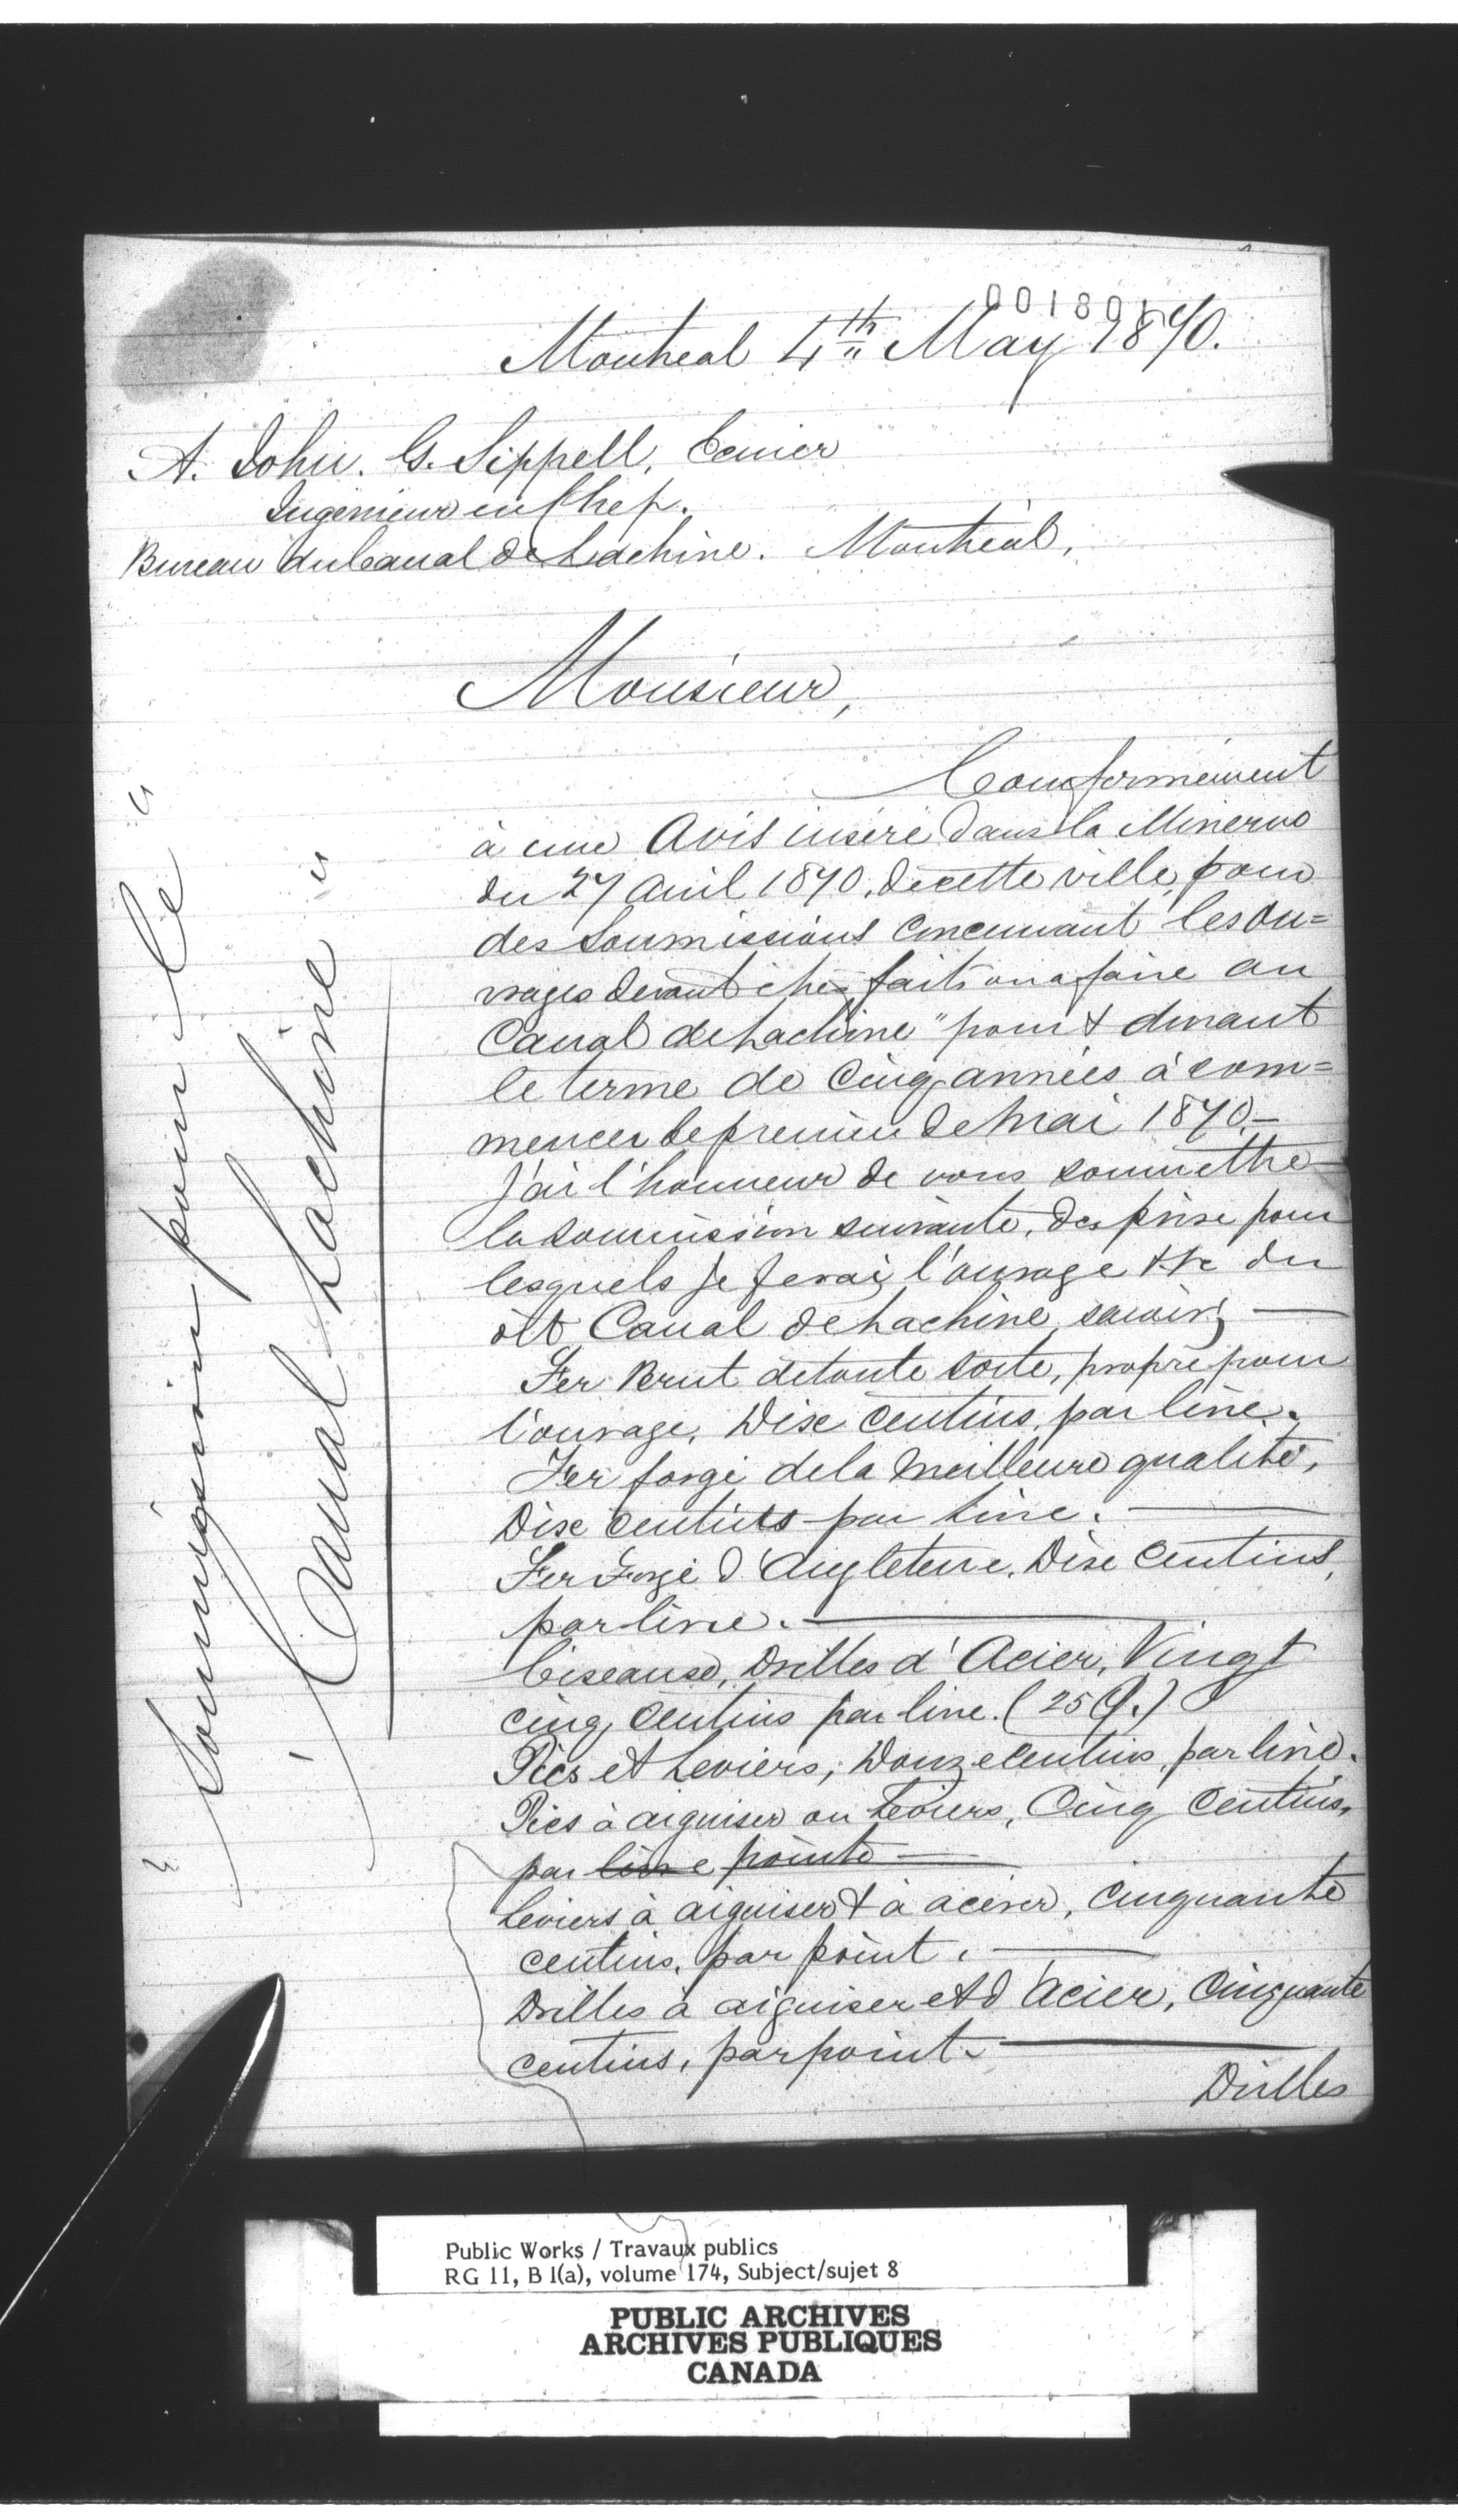 001801
Montreal 4th May 1870.
A. John. G. Sippell, Ecuier
Ingénieur en Chef.
Bureau du Canal de Lachine. Montréal,
Monsieur,
Conformément
à une Avis inséré dans la Minerve
du 27 Avril 1870, de cette ville, pour
des Soumissions concernant les ou=
vrages devant être faits ou a faire au
Canal de Lachine "pour & durant
le terme de Cinq années à com=
mencer le premier de Mai 1870.—
J'ai l'honneur de vous soumettre
la soumission suivante, des prix pour
lesquels je ferai l'ouvrage &c du
dit Canal de Lachine, savoir; —
Fer Brut de toute sorte, propre pour
l'ouvrage, Dix Centins, par livre.
Fer forgé de la Meilleure qualité,
Dix centins par livre. —
Fer Forgé d'Angleterre, Dix Centins,
par livre. —
Ciseaux, Drilles d'Acier, Vingt
cinq Centins par livre. (25 C.)
Pics et Leviers, Douze centins, par livre.
Pics à aiguiser ou Leviers, Cinq Centins,
par livre pointe —
Leviers à aiguiser & à acérer, Cinquante
centins, par point. —
Drilles à aiguiser et d'acier, Cinquante
centins, par point. —
Drilles
"Soumission pour le"
"Canal Lachine"
Public Works / Travaux publics
RG 11, B 1(a), volume 174, Subject/sujet 8
PUBLIC ARCHIVES
ARCHIVES PUBLIQUES
CANADA